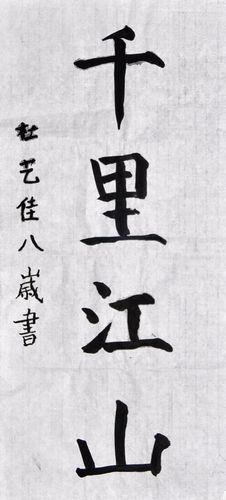 千里江山
杜艺佳八歲書